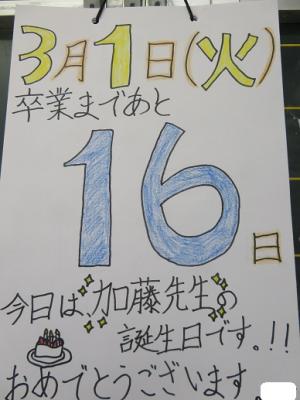 3月1日(火)
卒業まであと
16日
今日は、加藤先生の
誕生日です。!!
おめでとうございます